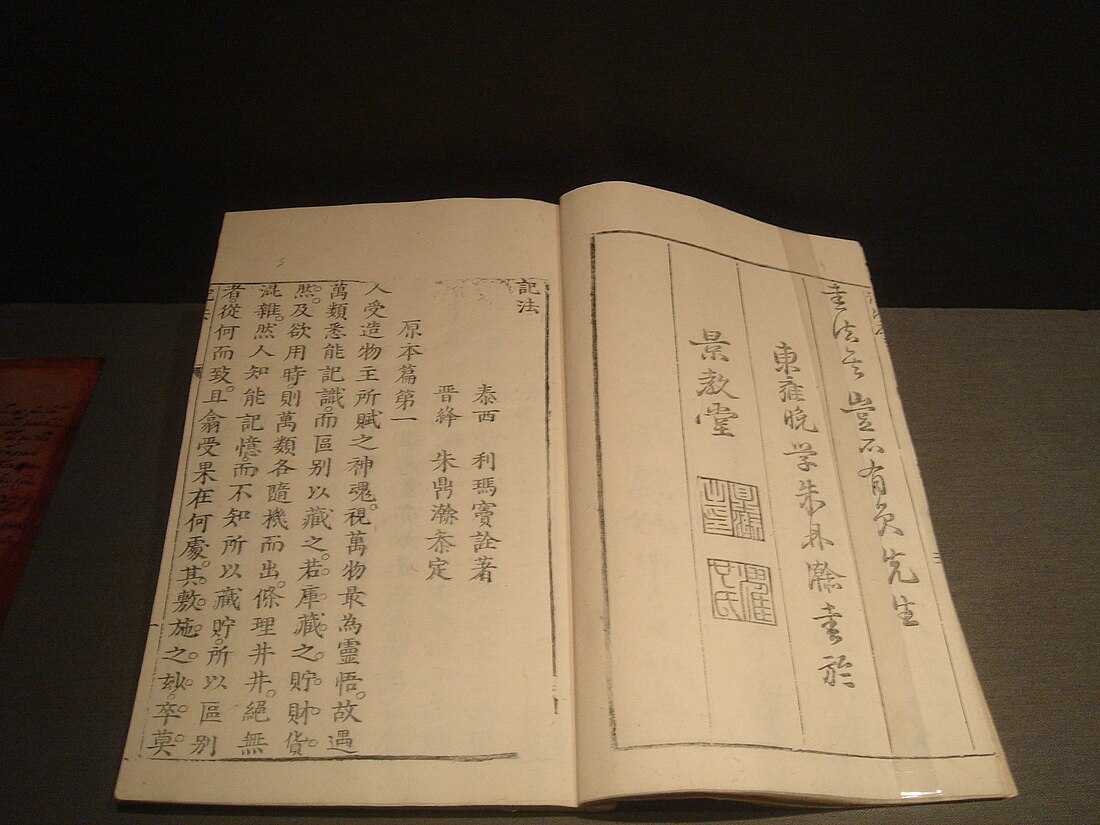 書法矣豈不有負先生
東雍晚学朱鼎瀚書於
景教堂
記法
泰西 利瑪竇詮著
晋絳 朱鼎瀚叅定
原本篇第一
人受造物主所賦之神魂。視萬物最為靈悟。故遇
萬類悉能記識。而區别以藏之。若庫藏之貯財貨
然。及欲用時。則萬類各隨機而出。條理井井。絕無
混雜。然人知能記憶。而不知所以藏貯。所以區别
者。從何而致。且翕受果在何處。其敷施之玅。卒莫